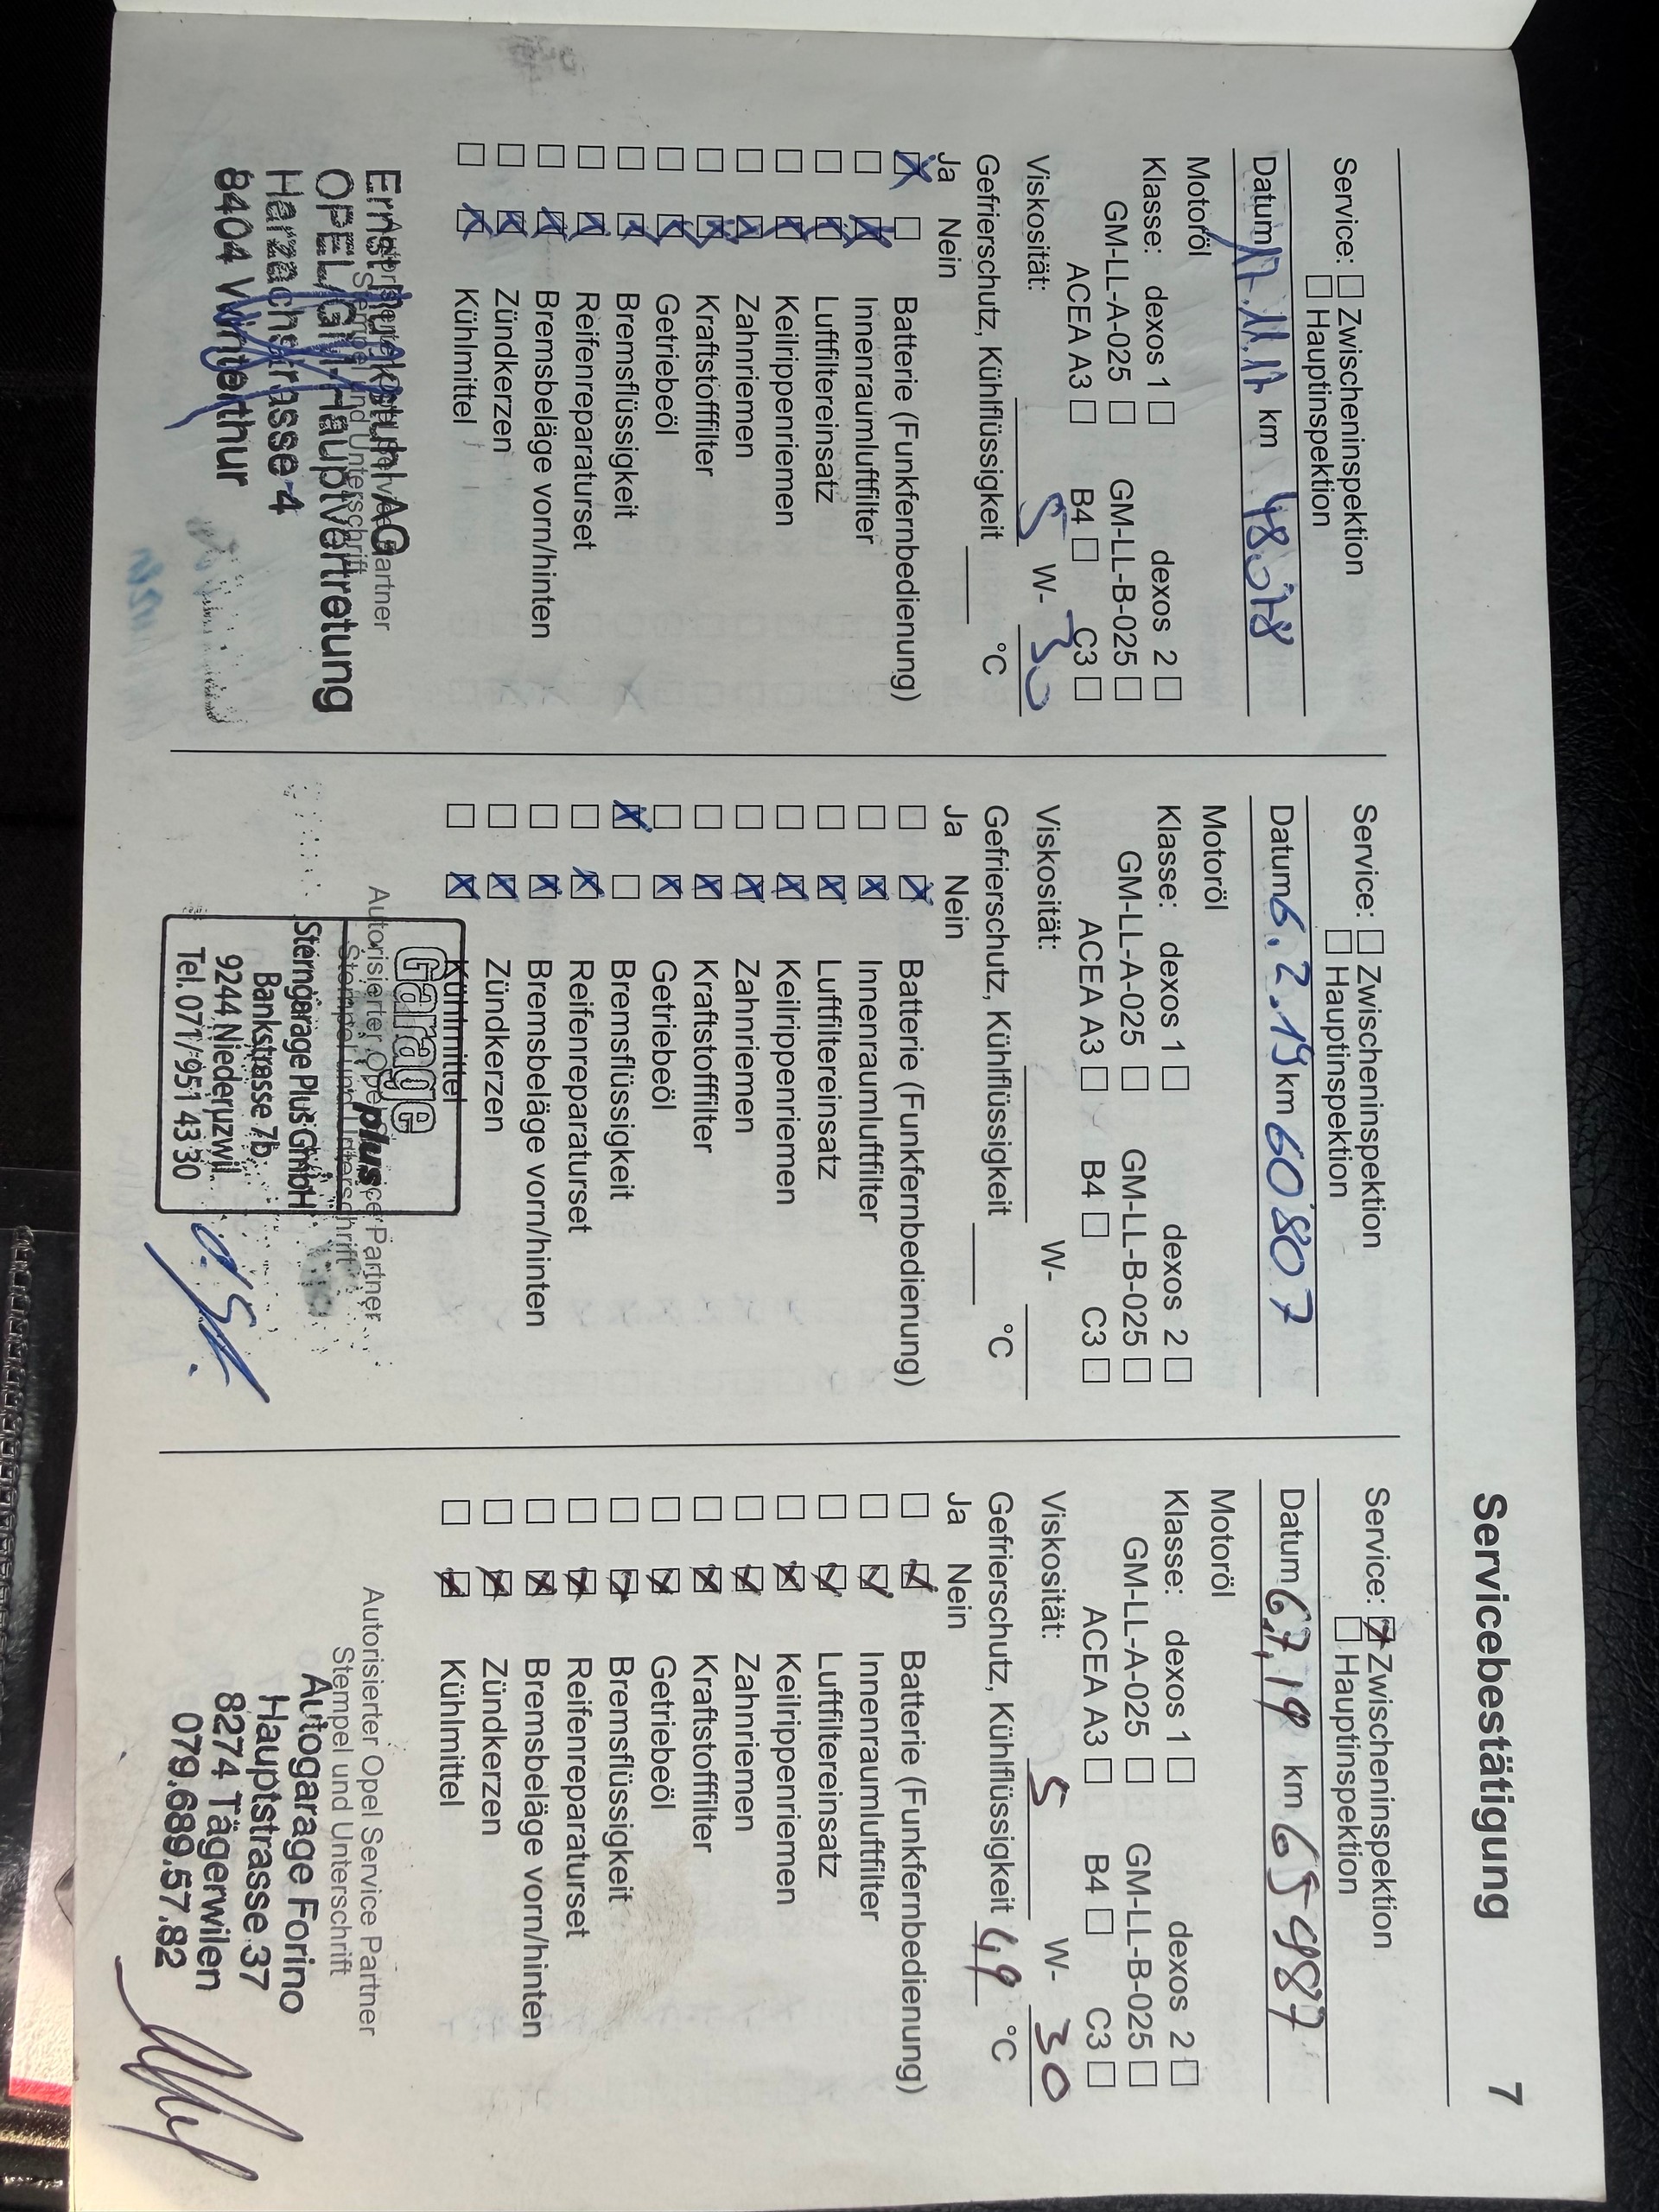 Servicebestätigung 7
Service: Zwischeninspektion
Hauptinspektion
Datum 17.11.17 km
Motoröl
Klasse: dexos 1 dexos 2
GM-LL-A-025 GM-LL-B-025
ACEA A3 B4 C3
Viskosität: 5 W- 30
Gefrierschutz, Kühlflüssigkeit °C
Ja Nein
Batterie (Funkfernbedienung)
Innenraumluftfilter
Luftfiltereinsatz
Keilrippenriemen
Zahnriemen
Kraftstofffilter
Getriebeöl
Bremsflüssigkeit
Reifenreparaturset
Bremsbeläge vorn/hinten
Zündkerzen
Kühlmittel
Partner
Stempel und Unterschrift
Ernst AG
OPEL/GM-Hauptvertretung
Harzachstrasse 4
8404 Winterthur
Service: Zwischeninspektion
Hauptinspektion
Datum 6.2.19 km 60'807
Motoröl
Klasse: dexos 1 dexos 2
GM-LL-A-025 GM-LL-B-025
ACEA A3 B4 C3
Viskosität: W-
Gefrierschutz, Kühlflüssigkeit °C
Ja Nein
Batterie (Funkfernbedienung)
Innenraumluftfilter
Luftfiltereinsatz
Keilrippenriemen
Zahnriemen
Kraftstofffilter
Getriebeöl
Bremsflüssigkeit
Reifenreparaturset
Bremsbeläge vorn/hinten
Zündkerzen
Kühlmittel
Autorisierter Opel Service Partner
Stempel und Unterschrift
Garage
plus
Sterngarage Plus GmbH
Bankstrasse 7b
9244 Niederuzwil
Tel. 071/951 43 30
Service: Zwischeninspektion
Hauptinspektion
Datum 6.7.19 km 65487
Motoröl
Klasse: dexos 1 dexos 2
GM-LL-A-025 GM-LL-B-025
ACEA A3 B4 C3
Viskosität: 5 W- 30
Gefrierschutz, Kühlflüssigkeit °C
Ja Nein
Batterie (Funkfernbedienung)
Innenraumluftfilter
Luftfiltereinsatz
Keilrippenriemen
Zahnriemen
Kraftstofffilter
Getriebeöl
Bremsflüssigkeit
Reifenreparaturset
Bremsbeläge vorn/hinten
Zündkerzen
Kühlmittel
Autorisierter Opel Service Partner
Stempel und Unterschrift
Autogarage Forino
Hauptstrasse 37
8274 Tägerwilen
079.689.57.82